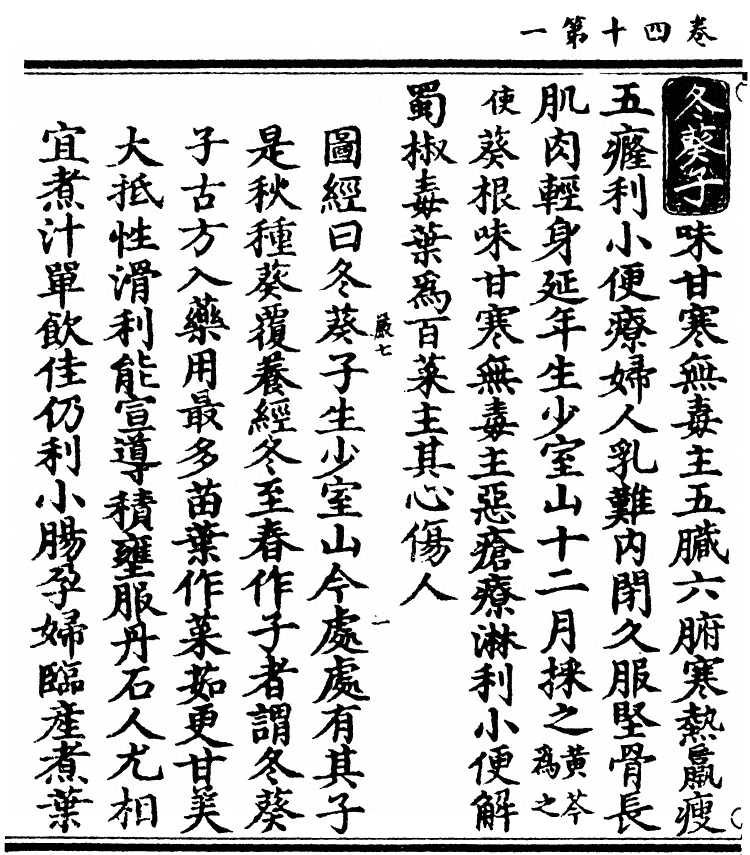 卷四十第一
冬葵子味甘寒無毒主五臟六腑寒熱羸瘦
五癃利小便療婦人乳難內閉久服堅骨長
肌肉輕身延年生少室山十二月採之黃芩爲之
使葵根味甘寒無毒主惡瘡療淋利小便解
蜀椒毒葉爲百菜主其心傷人
嚴七
一
圖經曰冬葵子生少室山今處處有其子
是秋種葵覆養經冬至春作子者謂冬葵
子古方入藥用最多苗葉作菜茹更甘美
大抵性滑利能宣導積壅服丹石人尤相
宜煮汁單飲佳仍利小腸孕婦臨產煮葉